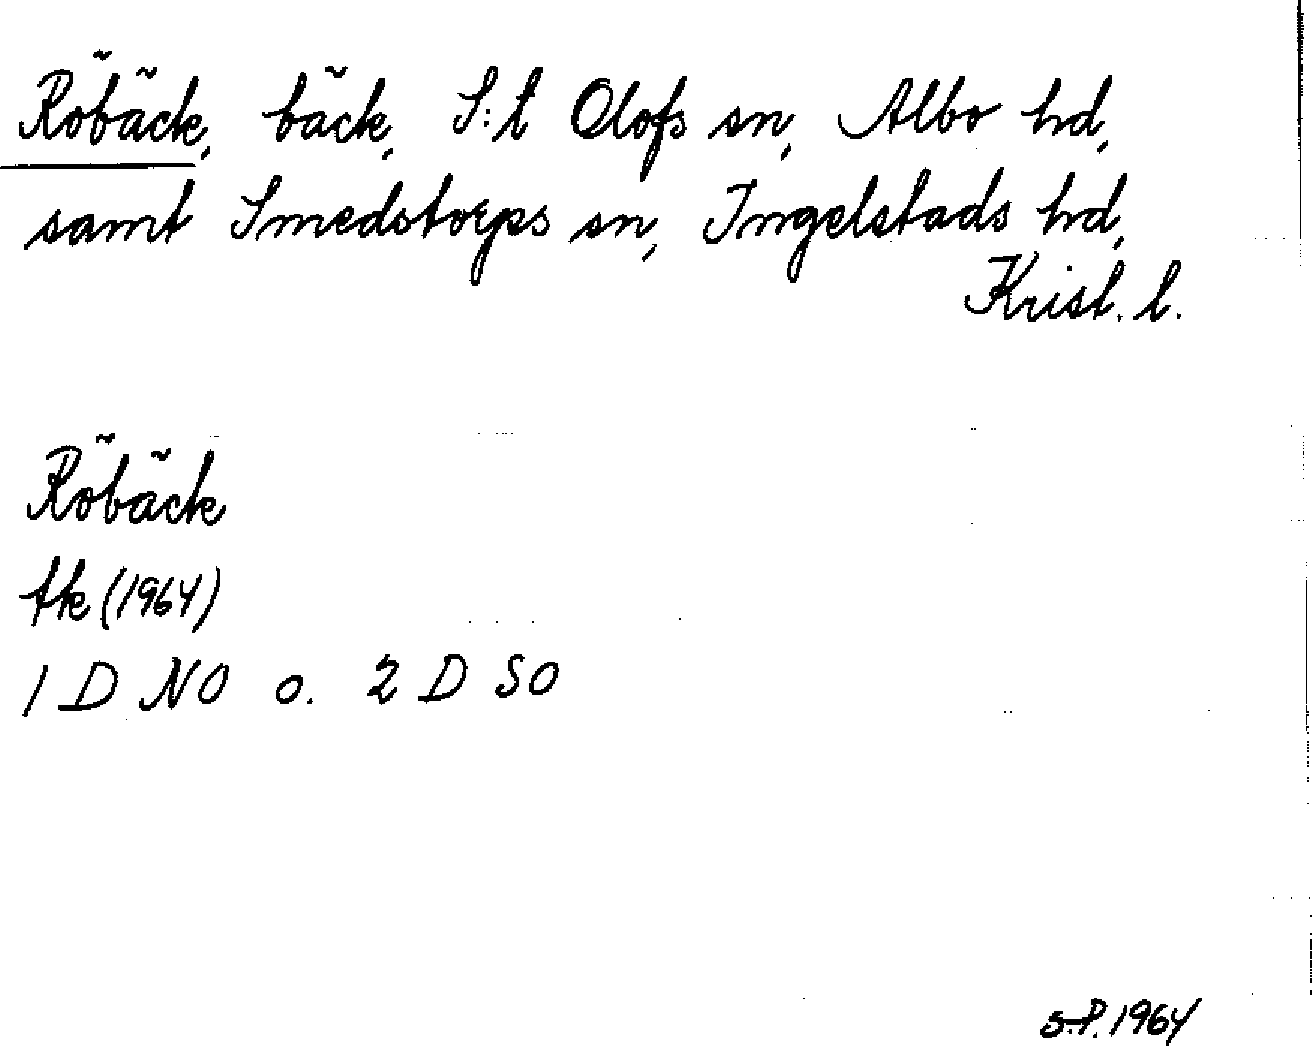 Röbäck, bäck, S:t Olofs sn, Albo hd,
samt Smedstorps sn, Ingelstads hd,
Krist. l.
Röbäck
tk (1964)
1 D NO o. 2 D SO
S.P. 1964